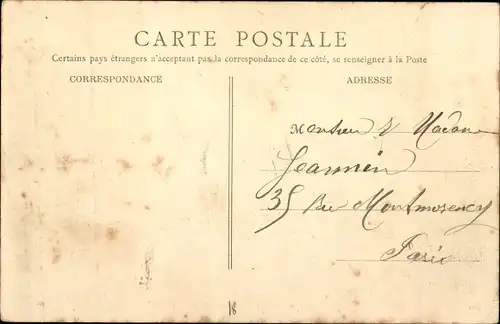 CARTE POSTALE
Certains pays étrangers n'acceptant pas la correspondance de ce côté, se renseigner à la Poste
CORRESPONDANCE
ADRESSE
Monsieur & Madame
Jeannin
35 Rue Montmorency
Paris
18